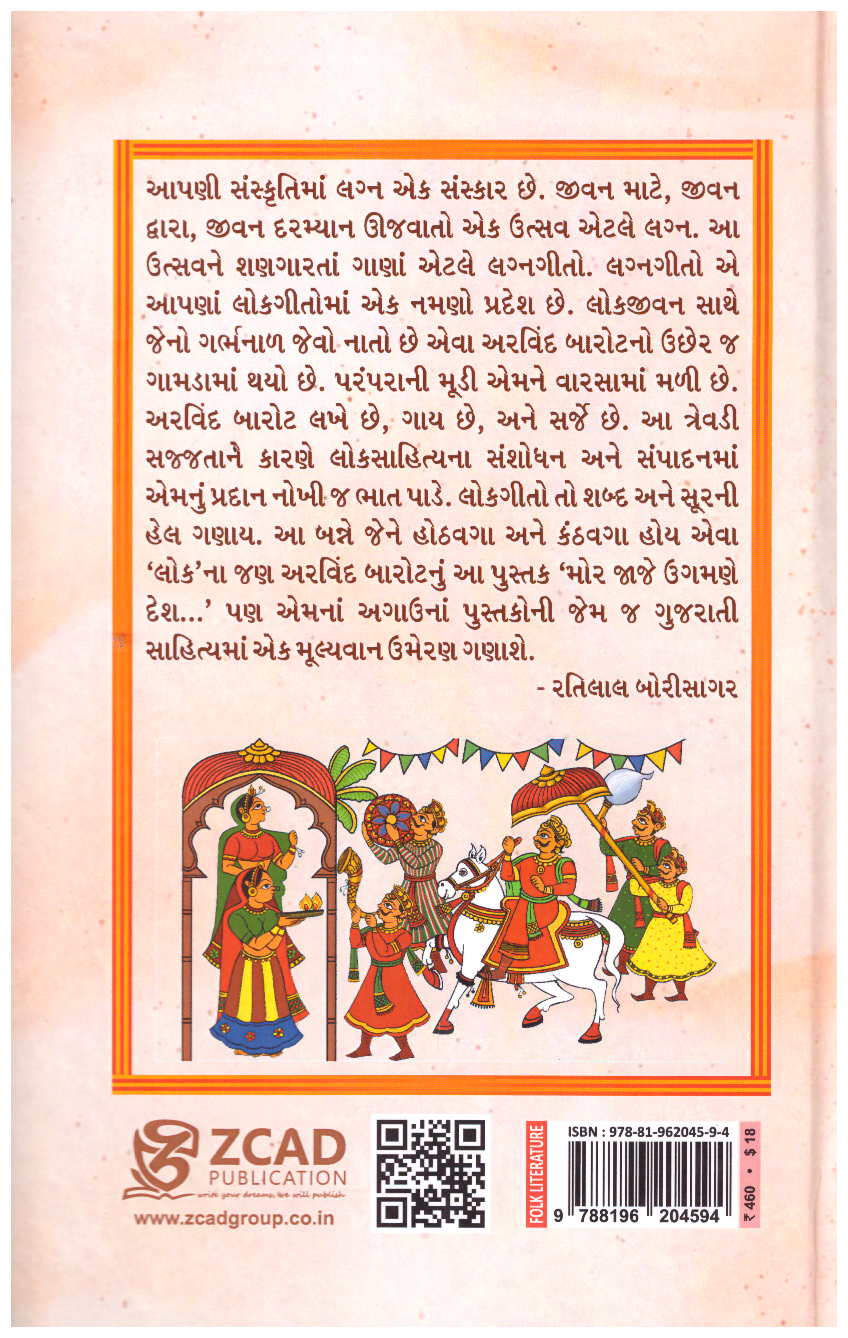 આપણી સંસ્કૃતિમાં લગ્ન એક સંસ્કાર છે. જીવન માટે, જીવન
દ્વારા, જીવન દરમ્યાન ઊજવાતો એક ઉત્સવ એટલે લગ્ન. આ
ઉત્સવને શણગારતાં ગાણાં એટલે લગ્નગીતો. લગ્નગીતો એ
આપણાં લોકગીતોમાં એક નમણો પ્રદેશ છે. લોકજીવન સાથે
જેનો ગર્ભનાળ જેવો નાતો છે એવા અરવિંદ બારોટનો ઉછેર જ
ગામડામાં થયો છે. પરંપરાની મૂડી એમને વારસામાં મળી છે.
અરવિંદ બારોટ લખે છે, ગાય છે, અને સર્જે છે. આ ત્રેવડી
સજ્જતાને કારણે લોકસાહિત્યના સંશોધન અને સંપાદનમાં
એમનું પ્રદાન નોખી જ ભાત પાડે. લોકગીતો તો શબ્દ અને સૂરની
હેલ ગણાય. આ બન્ને જેને હોઠવગા અને કંઠવગા હોય એવા
‘લોક’ના જણ અરવિંદ બારોટનું આ પુસ્તક ‘મોર જાજે ઉગમણે
દેશ...’ પણ એમનાં અગાઉનાં પુસ્તકોની જેમ જ ગુજરાતી
સાહિત્યમાં એક મૂલ્યવાન ઉમેરણ ગણાશે.
- રતિલાલ બોરીસાગર
ZCAD
PUBLICATION
write your dreams, We will publish
www.zcadgroup.co.in
FOLK LITERATURE
ISBN : 978-81-962045-9-4
9 788196 204594
₹ 460 • $ 18